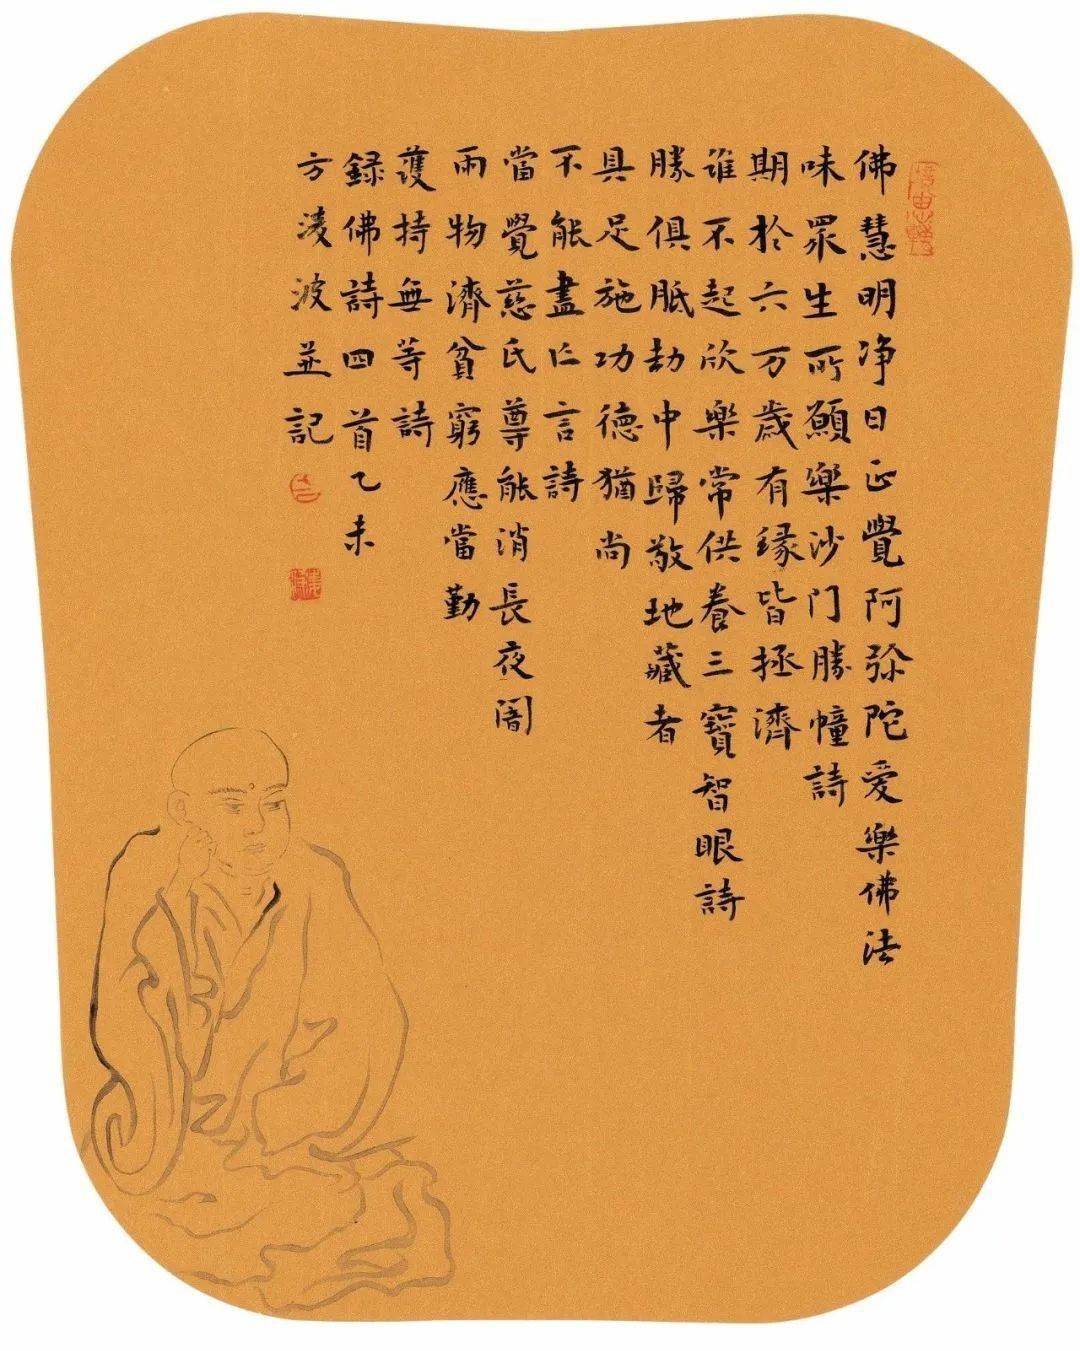 佛慧明净日正覺阿弥陀爱樂佛法
味眾生所願樂沙门勝幢詩
期於六万歳有緣皆拯濟
谁不起欣樂常供養三寶智眼詩
勝俱胝劫中歸敬地藏者
具足施功德猶尚
不能盡仁言詩
當覺慈氏尊能消長夜闇
雨物濟貧窮應當勤
護持無等詩
録佛詩四首乙未
方淩波並記